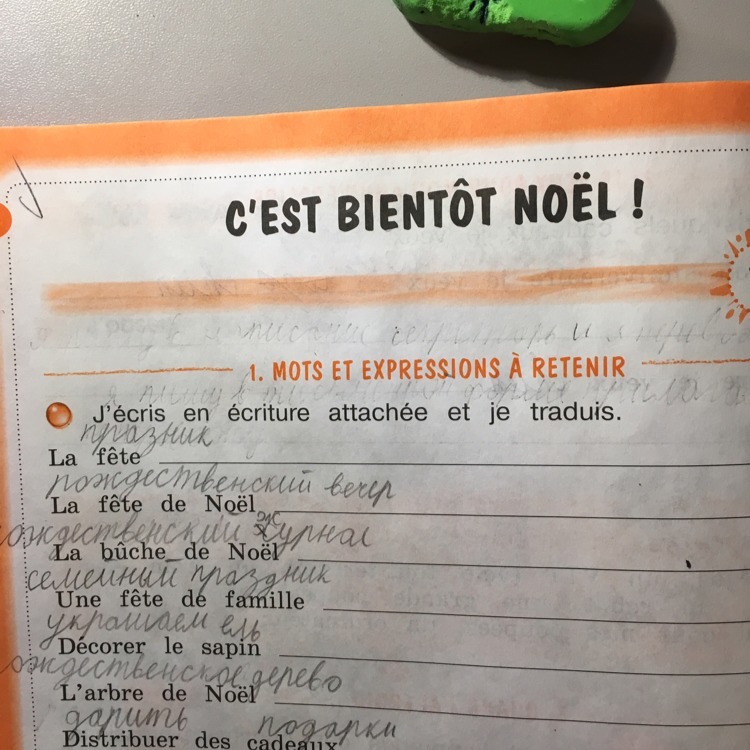 C'EST BIENTÔT NOËL !
1. MOTS ET EXPRESSIONS À RETENIR
J'écris en écriture attachée et je traduis.
празник
La fête
рождественский вечер
La fête de Noël
ождественский журнал
La bûche de Noël
семейный праздник
Une fête de famille
украшаем ель
Décorer le sapin
ождественское дерево
L'arbre de Noël
дарить подарки
Distribuer des cadeaux